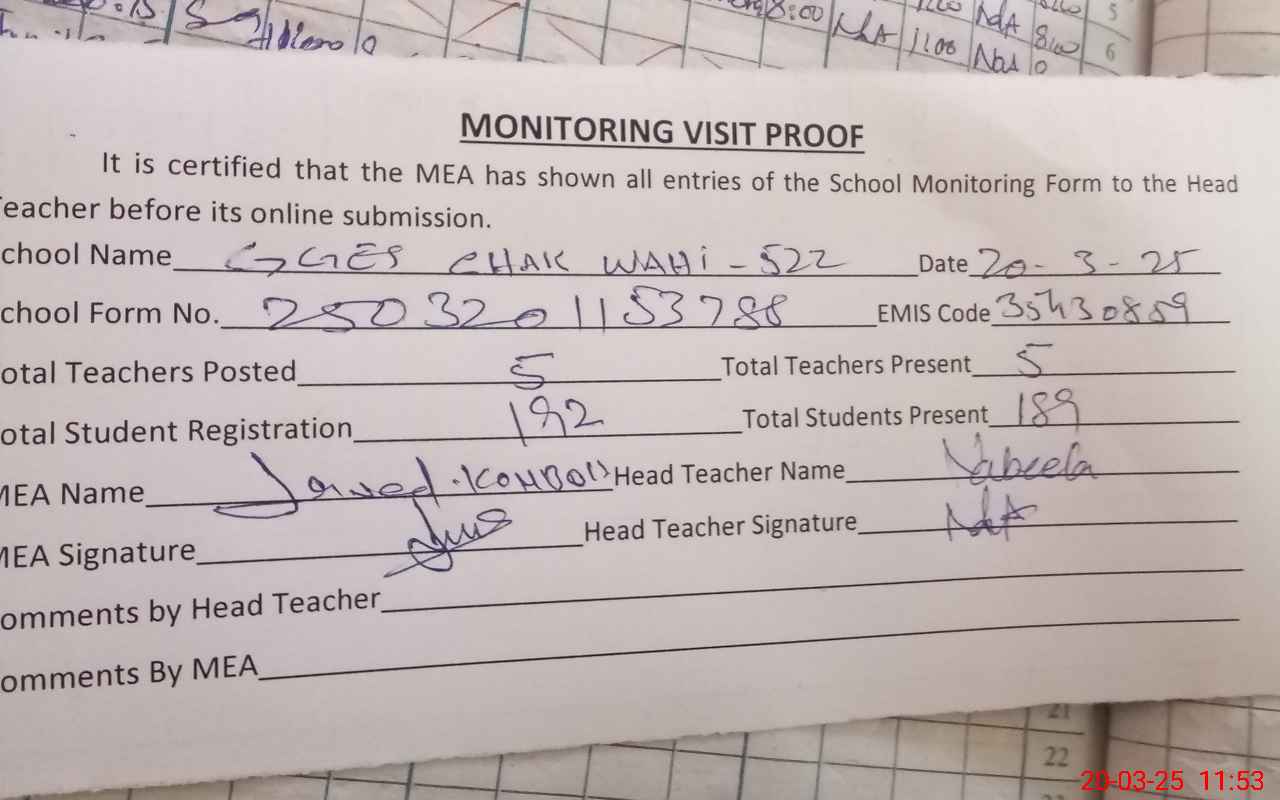 8:00 NdA 1100 NdA 8:00 5
NdA 1100 NdA 8:00 6
MONITORING VISIT PROOF
It is certified that the MEA has shown all entries of the School Monitoring Form to the Head
eacher before its online submission.
chool Name GGES CHAK WAHI - 522 Date 20-3-25
chool Form No. 2503201153788 EMIS Code 35430859
otal Teachers Posted 5 Total Teachers Present 5
otal Student Registration 192 Total Students Present 189
MEA Name Javed Head Teacher Name Nabeela
MEA Signature Head Teacher Signature NdA
omments by Head Teacher
omments By MEA
21
22
20-03-25 11:53